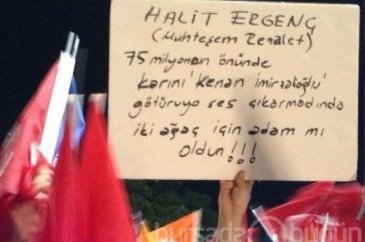 HALİT ERGENÇ
(Muhteşem Rezalet)
75 milyonun önünde
karını 'Kenan İmirzalıoğlu'
götürüyo ses çıkarmadında
iki ağaç için adam mı
oldun!!!
bursadabugün